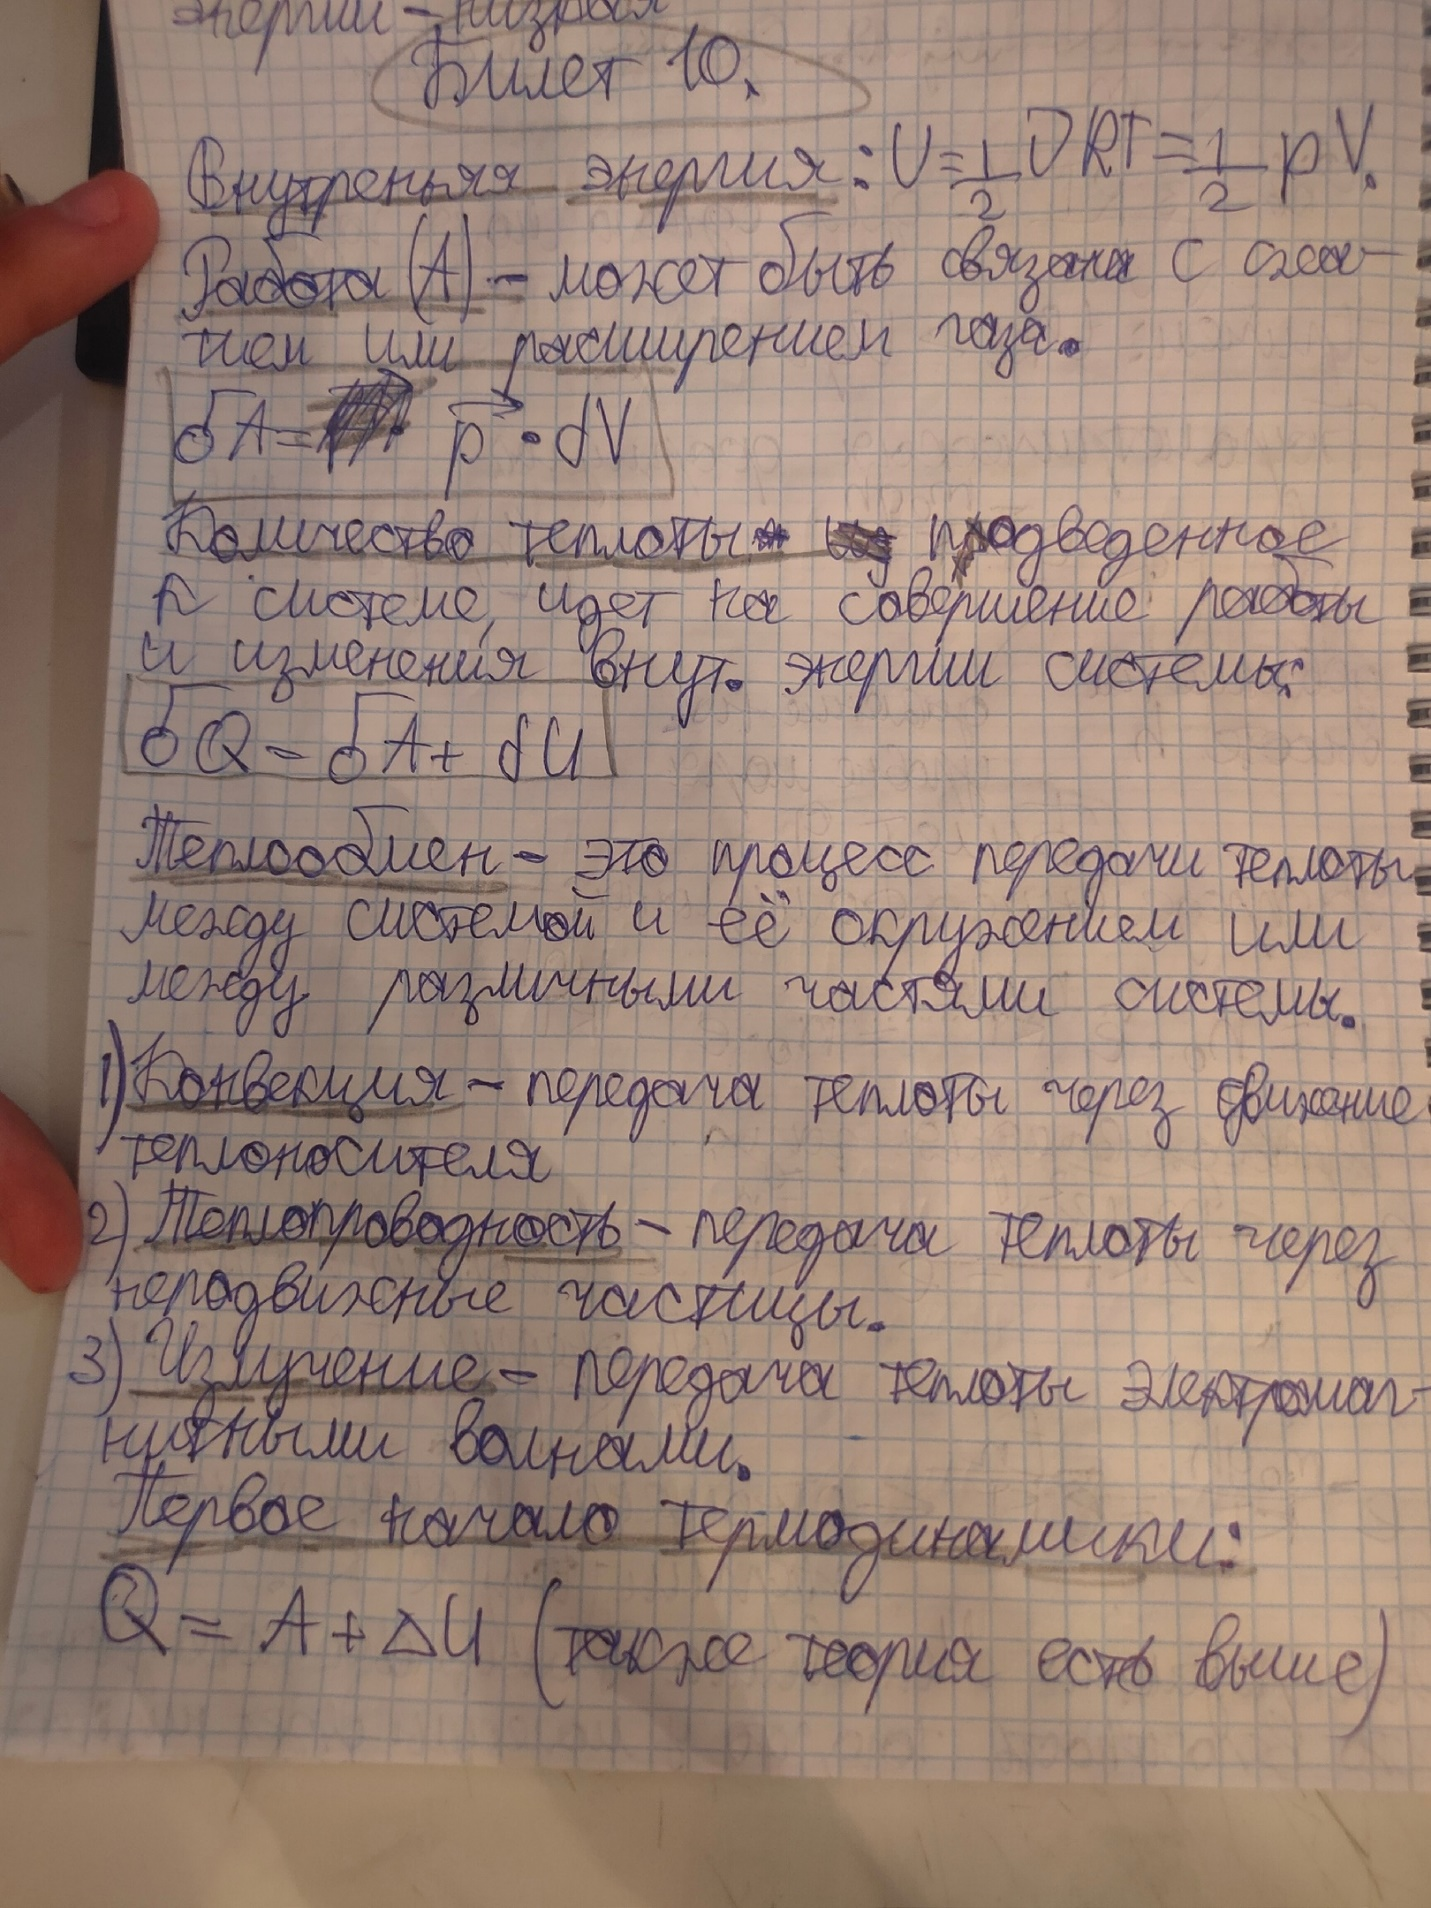 энергии - низкая
Билет 10.
Внутреньяя энергия: U = 1/2 νRT = 1/2 pV.
Работа (A) - может быть связана с сжа-
тием или расширением газа.
δA = p⃗ · dV
Количество теплоты подведенное
к системе, идет на совершение работы
и изменения внут. энергии системы:
δQ = δA + dU
Теплообмен - это процесс передачи теплоты
между системой и её окружением или
между различными частями системы.
1) Конвекция - передача теплоты через движение
теплоносителя
2) Теплопроводность - передача теплоты через
неподвижные частицы.
3) Излучение - передача теплоты электромаг-
нитными волнами.
Первое начало термодинамики:
Q = A + ΔU (также теория есть выше)